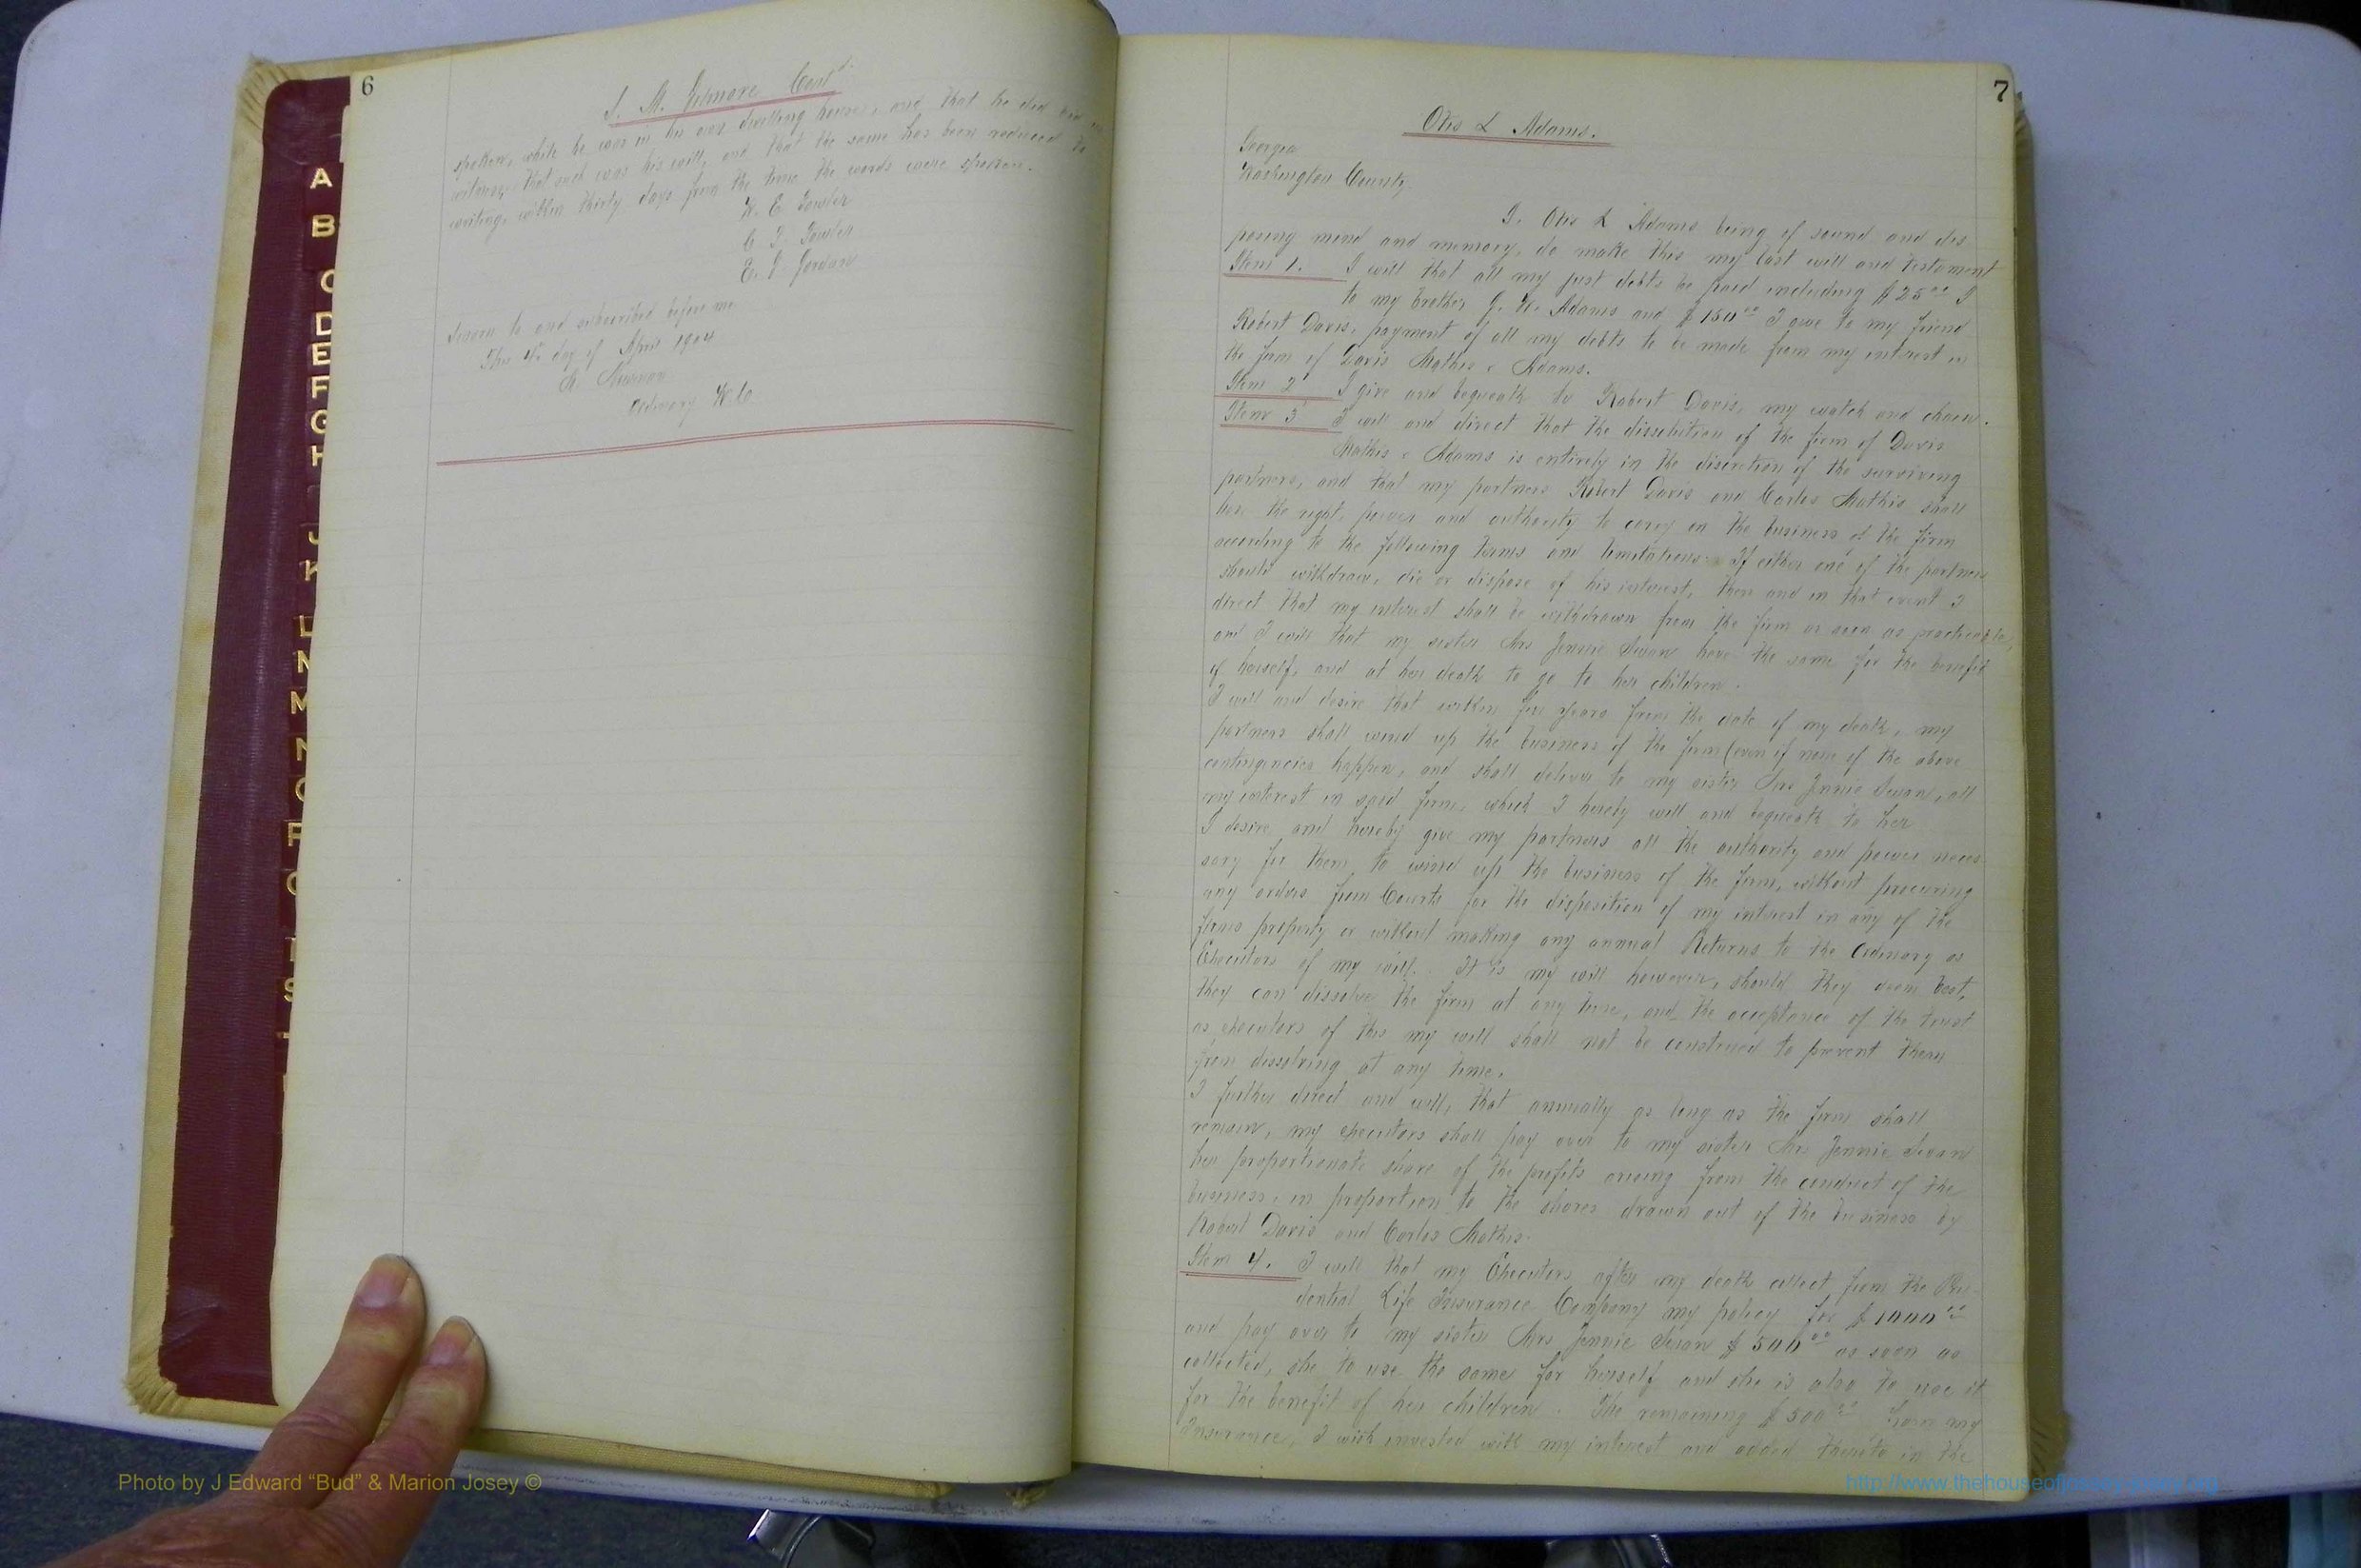 6
S. M. Gilmore Cont'd.
spoken, while he was in his own dwelling house, and that he did
witness, that such was his will, and that the same has been reduced to
writing, within thirty days from the time the words were spoken.
W. E. Fowler
C. T. Fowler
E. J. Jordan
Sworn to and subscribed before me
This 4th day of April 1904
M. Newman
Ordinary W. C.
A
B
C
D
E
F
G
H
J
K
L
N
M
N
O
P
Q
R
S
T
7
Otis L Adams.
Georgia
Washington County,
I, Otis L Adams being of sound and dis
posing mind and memory, do make this my last will and testament
Item 1. I will that all my just debts be paid including $25.00 I
to my brother G. W. Adams and $150.00 I owe to my friend
Robert Davis, payment of all my debts to be made from my interest in
the firm of Davis Mathis & Adams.
Item 2 I give and bequeath to Robert Davis, my watch and chain.
Item 3 I will and direct that the dissolution of the firm of Davis
Mathis & Adams is entirely in the discretion of the surviving
partners, and that my partners Robert Davis and Carlos Mathis shall
have the right, power and authority to carry on the business of the firm
according to the following terms and limitations. If either one of the partners
should withdraw, die or dispose of his interest, then and in that event I
direct that my interest shall be withdrawn from the firm as soon as practicable,
and I will that my sister Mrs Jennie Swan have the same for the benefit
of herself, and at her death to go to her children.
I will and desire that within five years from the date of my death, my
partners shall wind up the business of the firm (even if none of the above
contingencies happen, and shall deliver to my sister Mrs Jennie Swan, all
my interest in said firm, which I hereby will and bequeath to her
I desire and hereby give my partners all the authority and power neces
sary for them to wind up the business of the firm, without procuring
any orders from Courts for the disposition of my interest in any of the
firms property or without making any annual Returns to the Ordinary as
Executors of my will. It is my will however, should they deem best,
they can dissolve the firm at any time, and the acceptance of the trust
as executors of this my will shall not be construed to prevent them
from dissolving at any time.
I further direct and will, that annually as long as the firm shall
remain, my executors shall pay over to my sister Mrs Jennie Swan
her proportionate share of the profits arising from the conduct of the
business, in proportion to the shares drawn out of the business by
Robert Davis and Carlos Mathis.
Item 4. I will that my Executors after my death collect from the Pru-
dential Life Insurance Company my policy for $1000.00
and pay over to my sister Mrs Jennie Swan $500.00 as soon as
collected, she to use the same for herself and she is also to use it
for the benefit of her children. The remaining $500.00 from my
Insurance, I wish invested with my interest and added thereto in the
Photo by J Edward “Bud” & Marion Josey ©